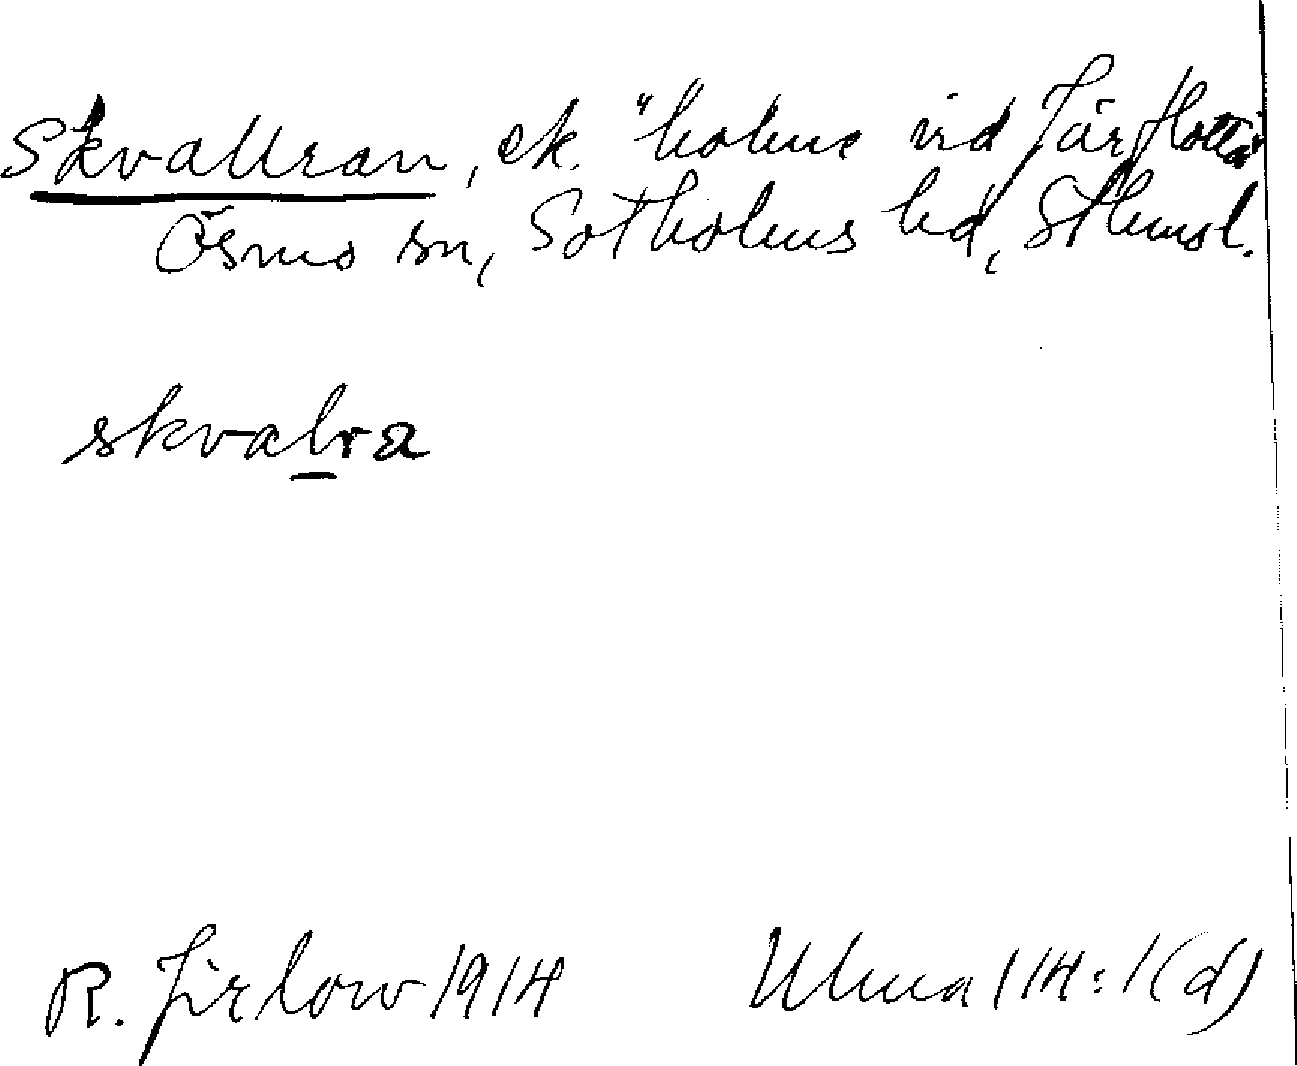 Skvallran, ek. "holme vid Järflotta
Ösmo sn, Sotholms hd, Sthmsl.
skvalra
R. Jirlow 1914
Ulma 114:1(d)